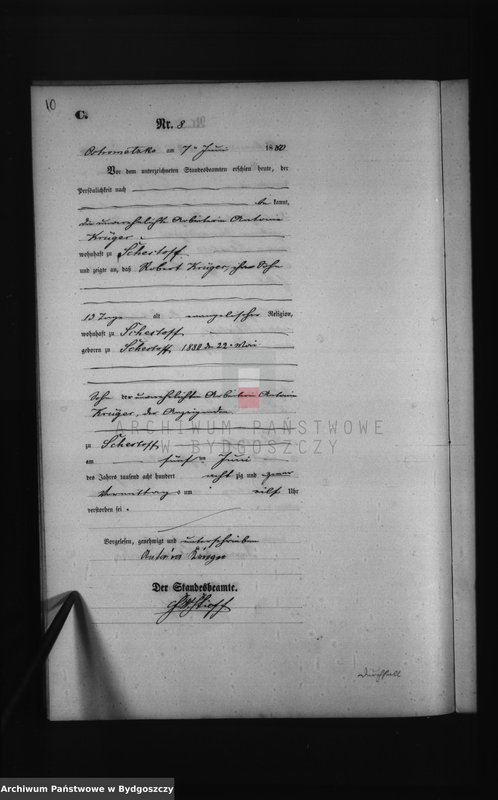 10
C.
Nr. 8
Ostrometzko am 7ten Juni 1882
Vor dem unterzeichneten Standesbeamten erschien heute, der
Persönlichkeit nach
be kannt,
die unverehelichte Arbeiterin Antonie
Krüger
wohnhaft zu
und zeigte an, daß Robert Krüger, ihr Sohn
13 Tage alt evangelischer Religion,
wohnhaft zu
geboren zu 1882 den 22. Mai
Sohn der unverehelichten Arbeiterin Antonie
Krüger, der Anzeigenden
ARCHIWUM PAŃSTWOWE
W BYDGOSZCZY
zu
am fünf ten Juni
des Jahres tausend acht hundert acht zig und zwei
Vormittags um eilf Uhr
verstorben sei.
Vorgelesen, genehmigt und unterschrieben
Antonie Krüger
Der Standesbeamte.
Durchfall
Archiwum Państwowe w Bydgoszczy